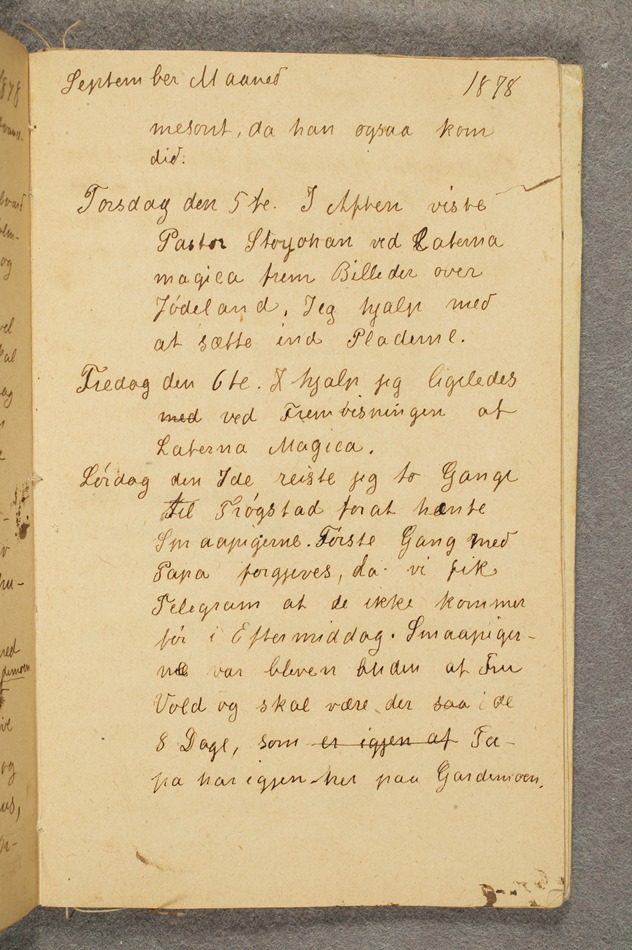 September Maaned 1878
mesont, da han ogsaa kom
did.
Torsdag den 5te. I Aften viste
Pastor Storjohan ved Laterna
magica frem Billeder over
Jødeland. Jeg hjalp med
at sætte ind Pladerne.
Fredag den 6te. hjalp jeg ligeledes
med ved Fremvisningen af
Laterna Magica.
Lørdag den 7de reiste jeg to Gange
til Trøgstad forat hænte
Smaapigerne. Første Gang med
Papa forgjeves, da vi fik
Telegram at de ikke kommer
før i Eftermiddag. Smaapiger-
ne var bleven buden af Fru
Vold og skal være der saa i de
8 Dage, som er igjen af Pa-
pa har igjen her paa Gardemoen.